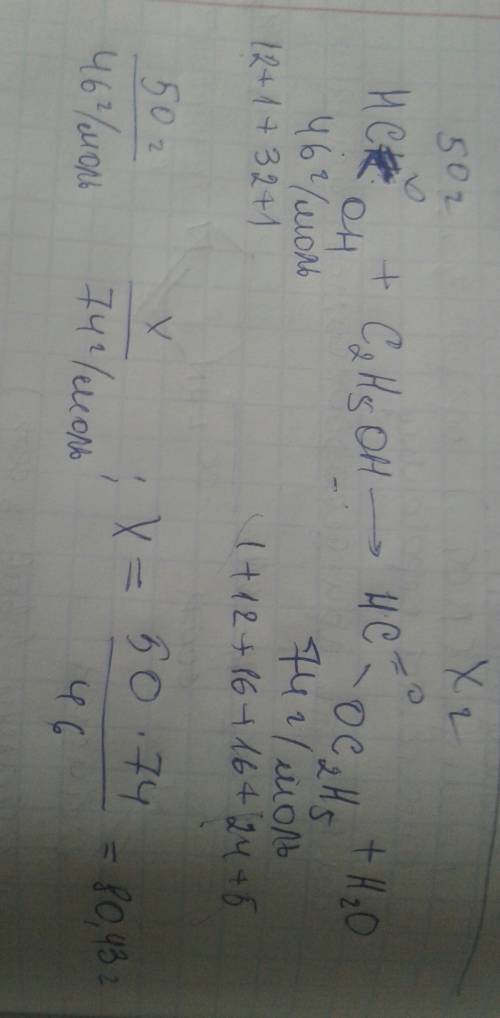 50 г X г
HC=O OH + C₂H₅OH → HC=O OC₂H₅ + H₂O
46 г/моль 74 г/моль
12+1+32+1 1+12+16+16+24+5
50 г / 46 г/моль X / 74 г/моль ; X = 50 · 74 / 46 = 80,43 г